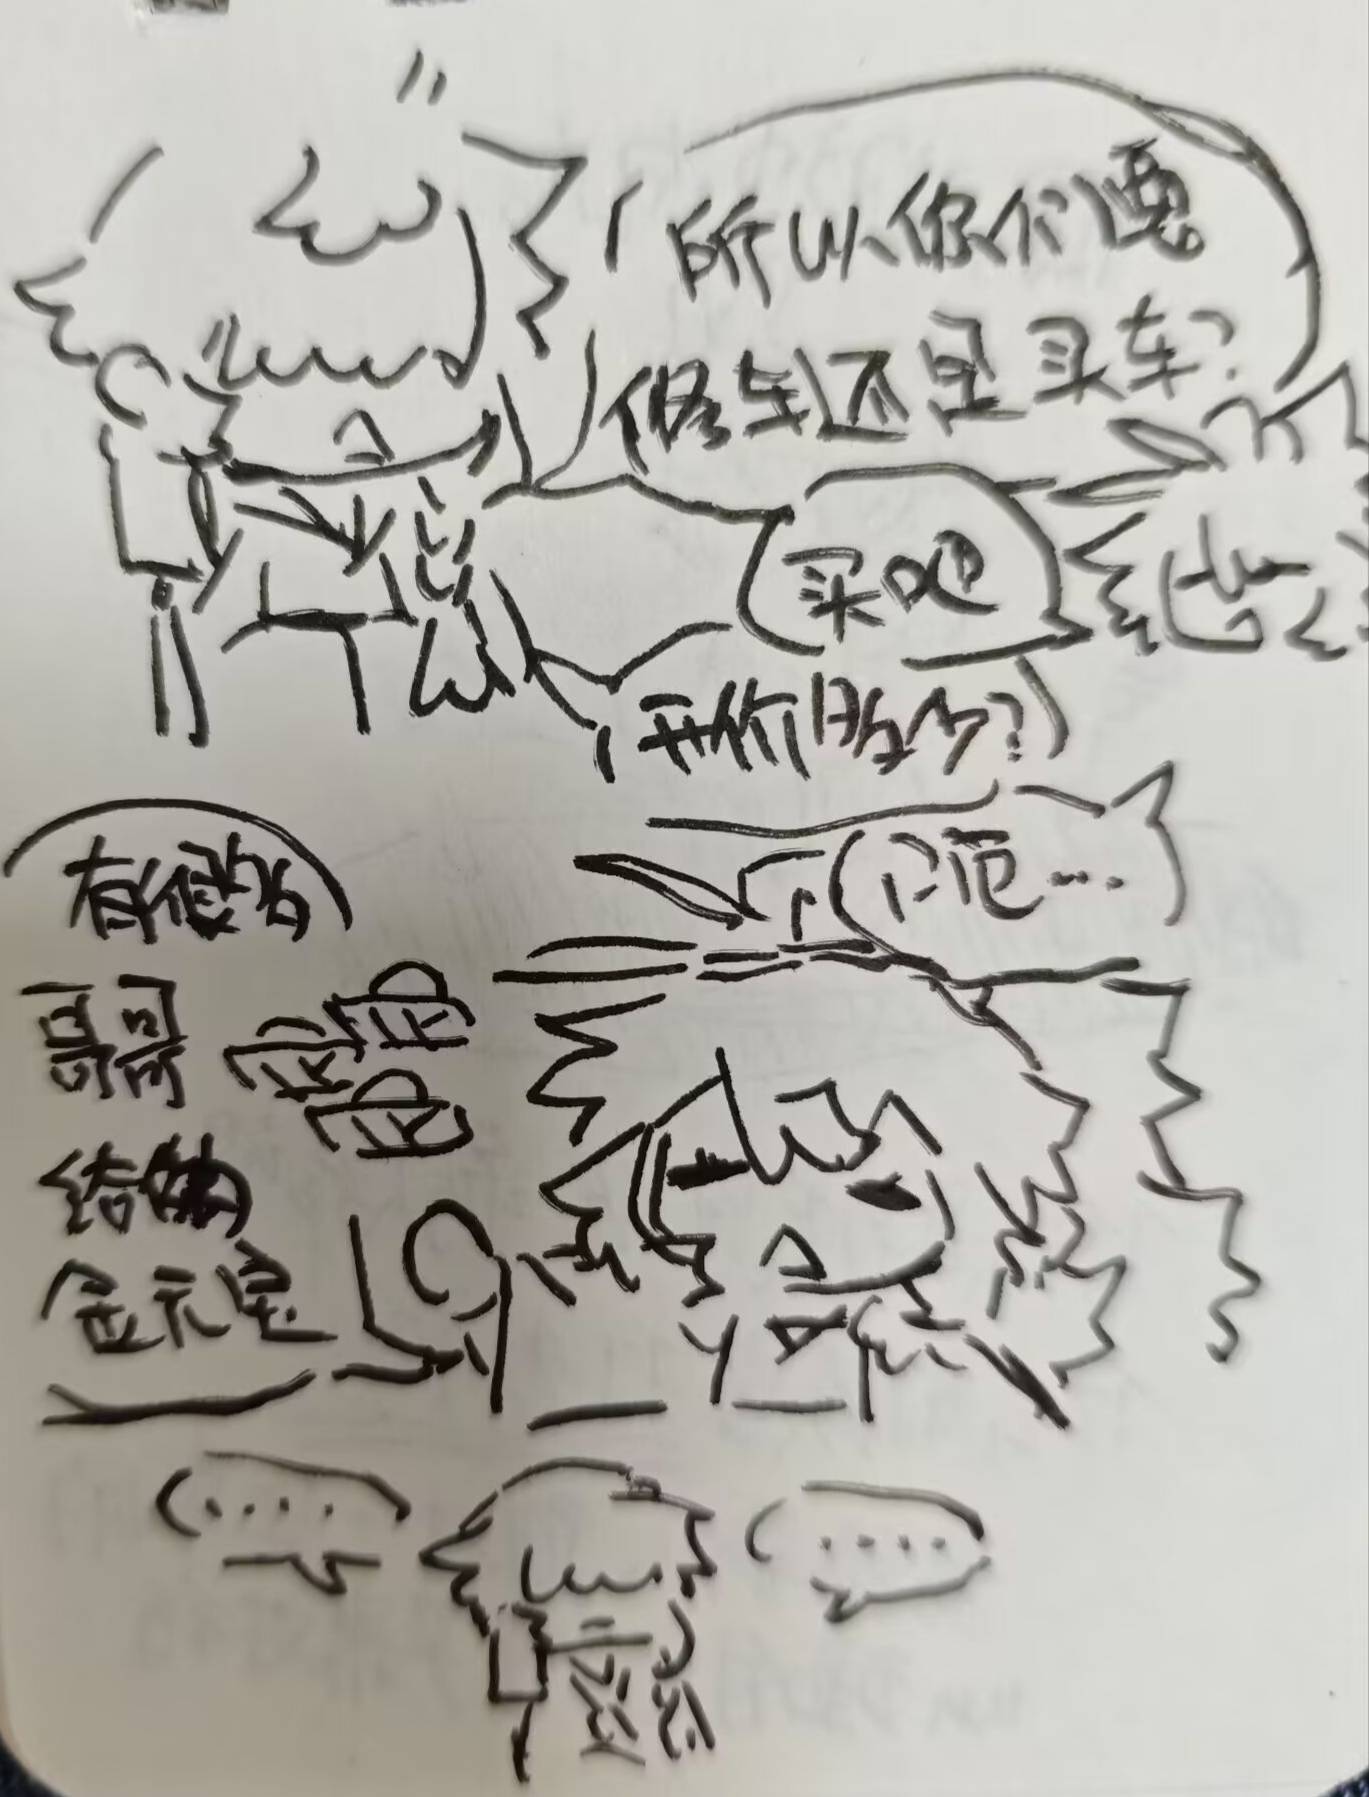 所以你们要
修车还是买车?
买吧
开价多少?
呃…
有很多
哥哥
给的
金元宝
....
....